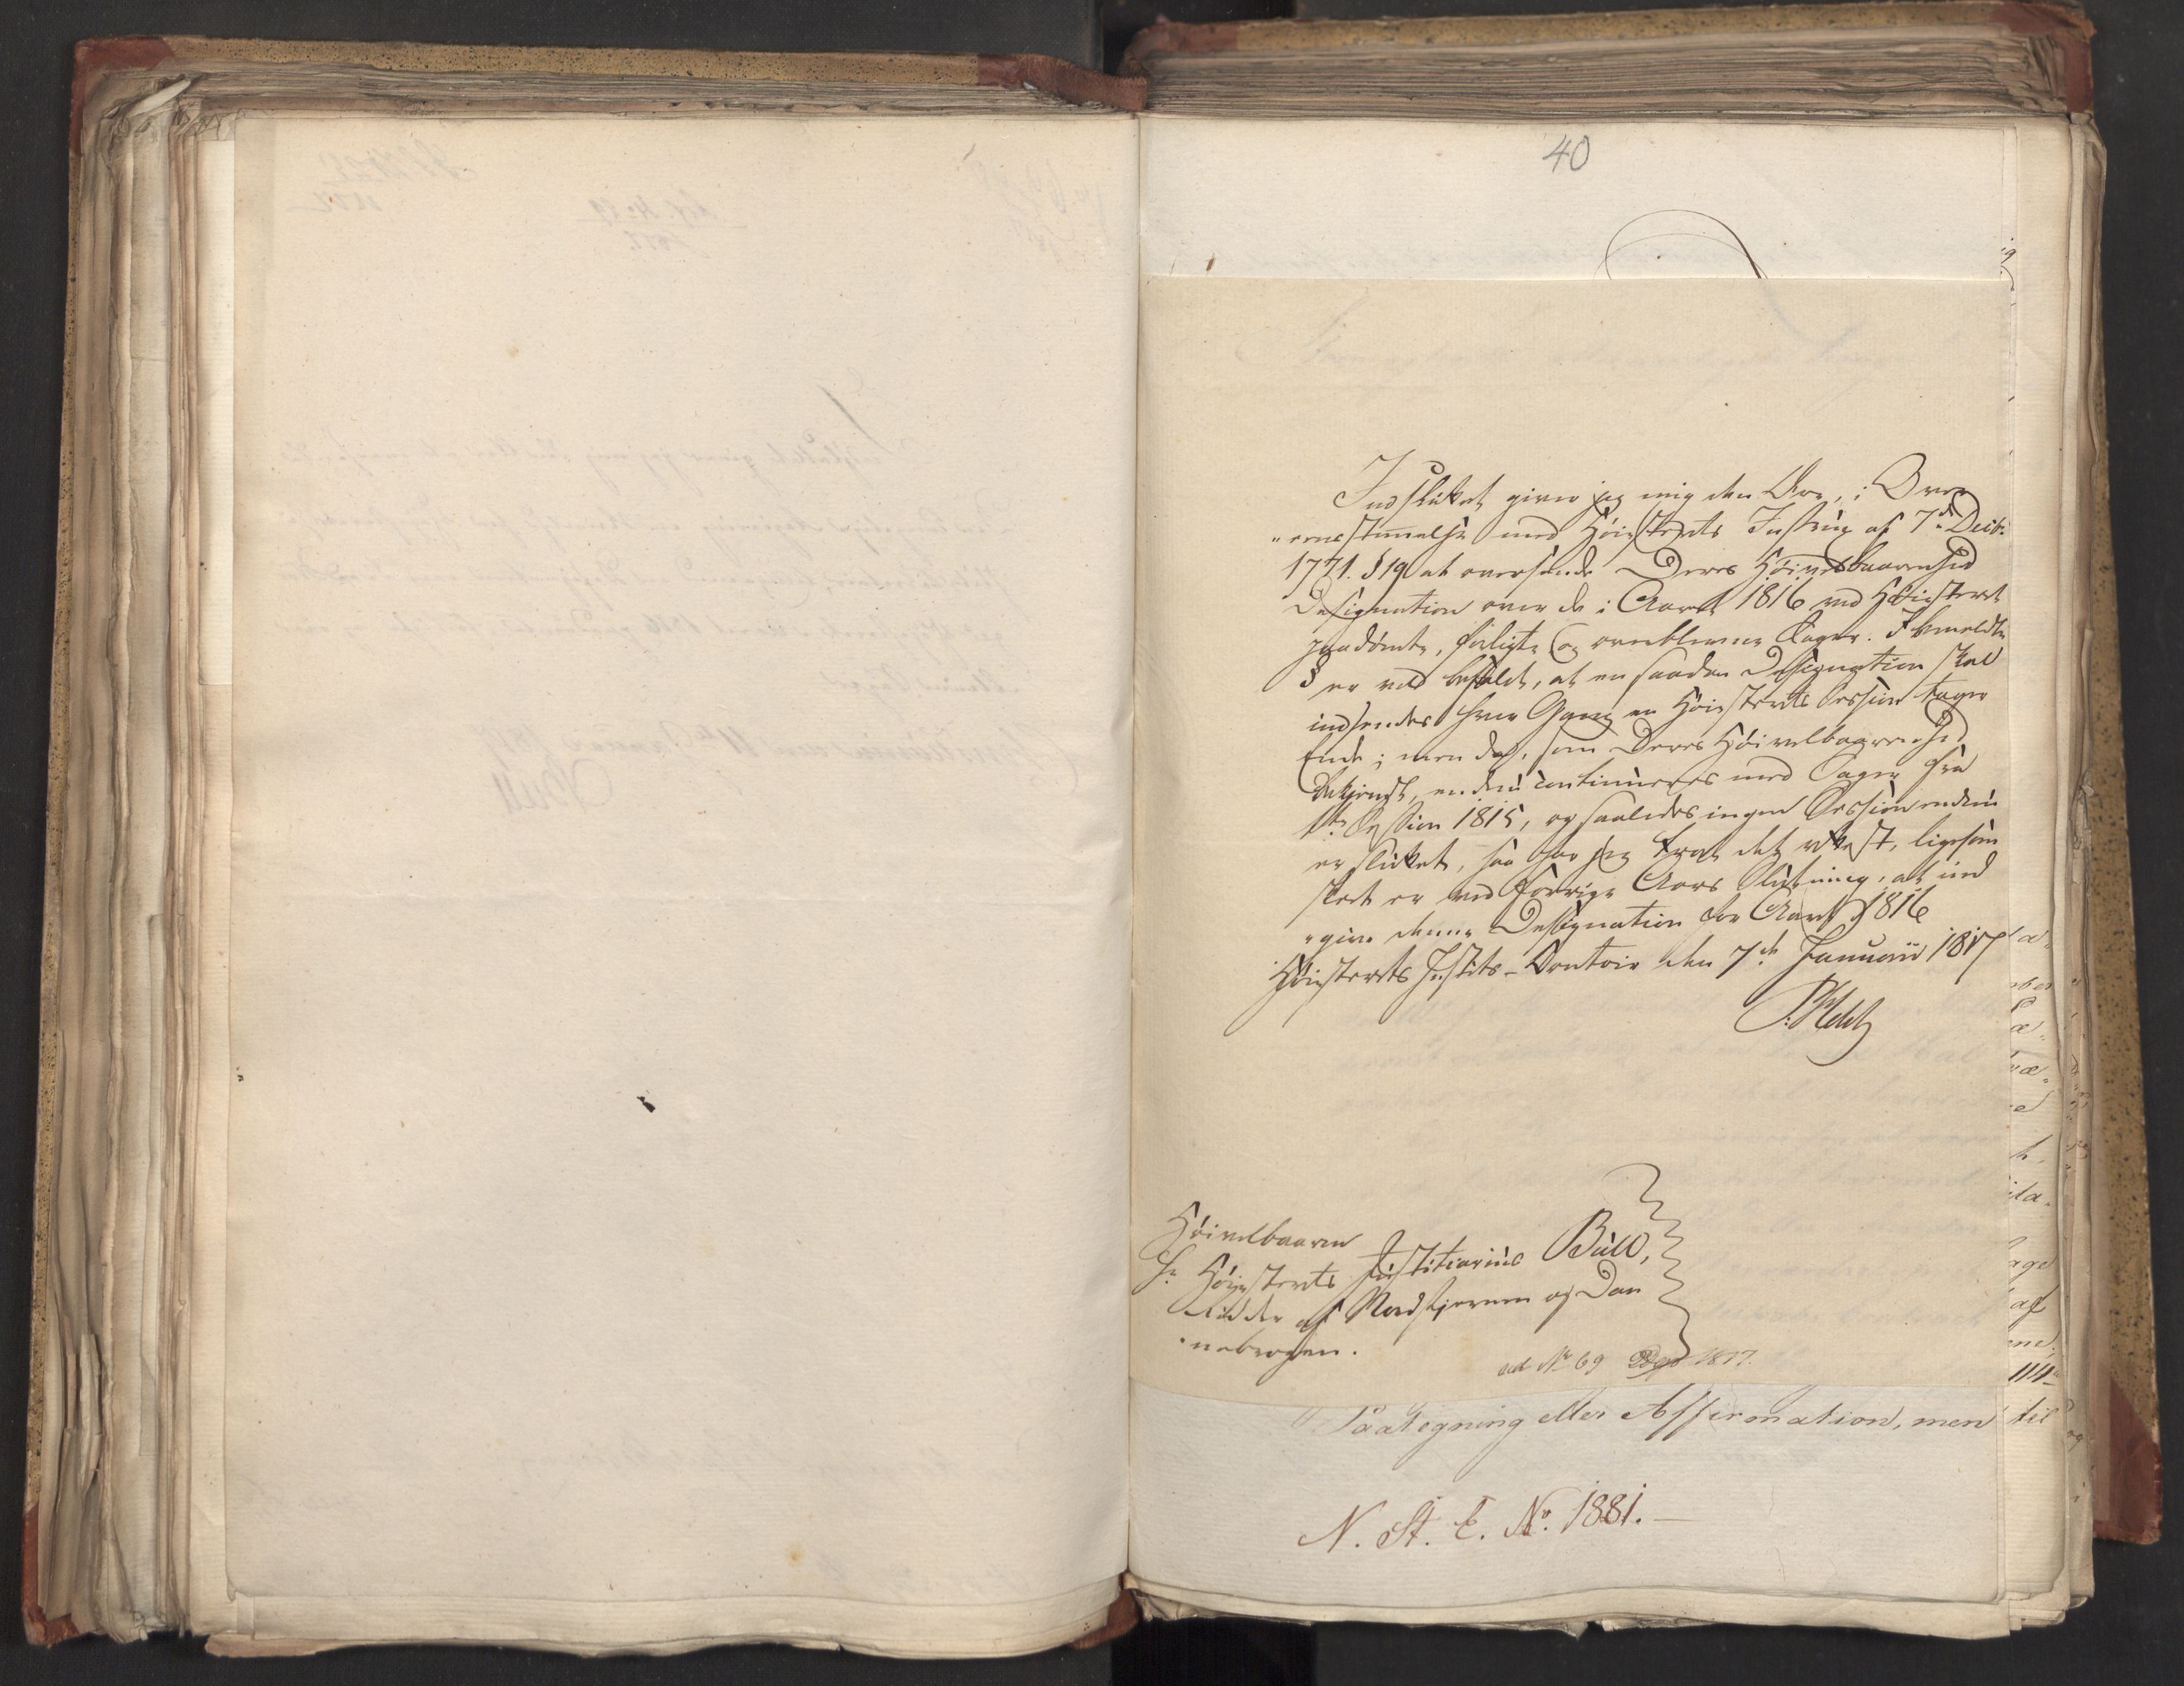 40
Indsluttet giver jeg mig den Ære, i Over
„eensstemmelse med Høiesterets Instrux af 7de Decbr
1771. § 19 at oversende Deres Høivelbaarenhed
Designation over de i Aaret 1816 ved Høiesteret
paadømte, forligte og overblevne Sager. I bemeldte
§ er vel befalet, at en saadan Designation skal
indsendes hver Gang en Høiesterets Session tager
Ende; men da, som Deres Høivelbaarenhed
bekjendt, endnu continueres med Sager fra
1te Session 1815, og saaledes ingen Session endnu
er sluttet, saa har jeg troet det rettest, ligesom
skeet er ved forrige Aars Slutning, at ind
„give denne Designation for Aaret 1816
Høiesterets Justits-Contoir den 7de Januarii 1817
Høivelbaarne
Hr Høiesterets Justitiarius Bull,
Ridder af Nordstjernen og Dan
„nebrogen.
ad No 69 1817.
Paategning eller Affirmation, men
til
N. St. E. No. 1881.